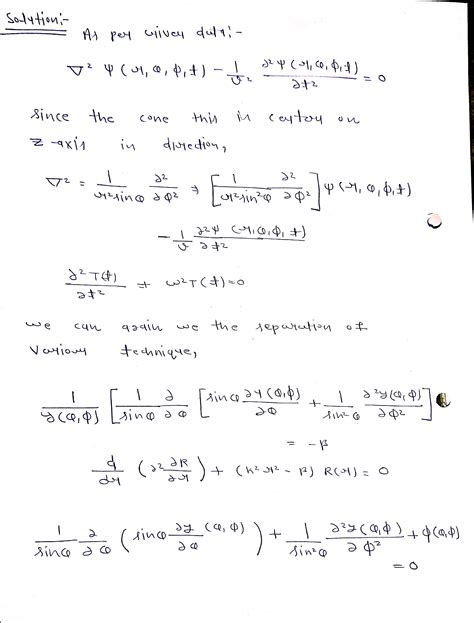 Solution:-
As per given data:-
∇² ψ(r, θ, φ, t) - 1/v² ∂²ψ(r, θ, φ, t)/∂t² = 0
since the cone this is on
z-axis in direction,
∇² = 1/r² sin θ ∂²/∂φ² [1/r² sin² θ ∂²/∂φ²] ψ(r, θ, φ, t)
- 1/v ∂²ψ(r, θ, φ, t)/∂t²
∂²T(t)/∂t² + ω² T(t) = 0
we can again we the separation of
technique,
1/y(θ, φ) [1/sin θ ∂/∂θ [sin θ ∂y(θ, φ)/∂θ + 1/sin² θ ∂²y(θ, φ)/∂φ²]
= -β
d/dr (r² ∂R/∂r) + (k² r² - β) R(r) = 0
1/sin θ ∂/∂θ (sin θ ∂y/∂θ (θ, φ)) + 1/sin² θ ∂²y(θ, φ)/∂φ² + φ(θ, φ)
= 0